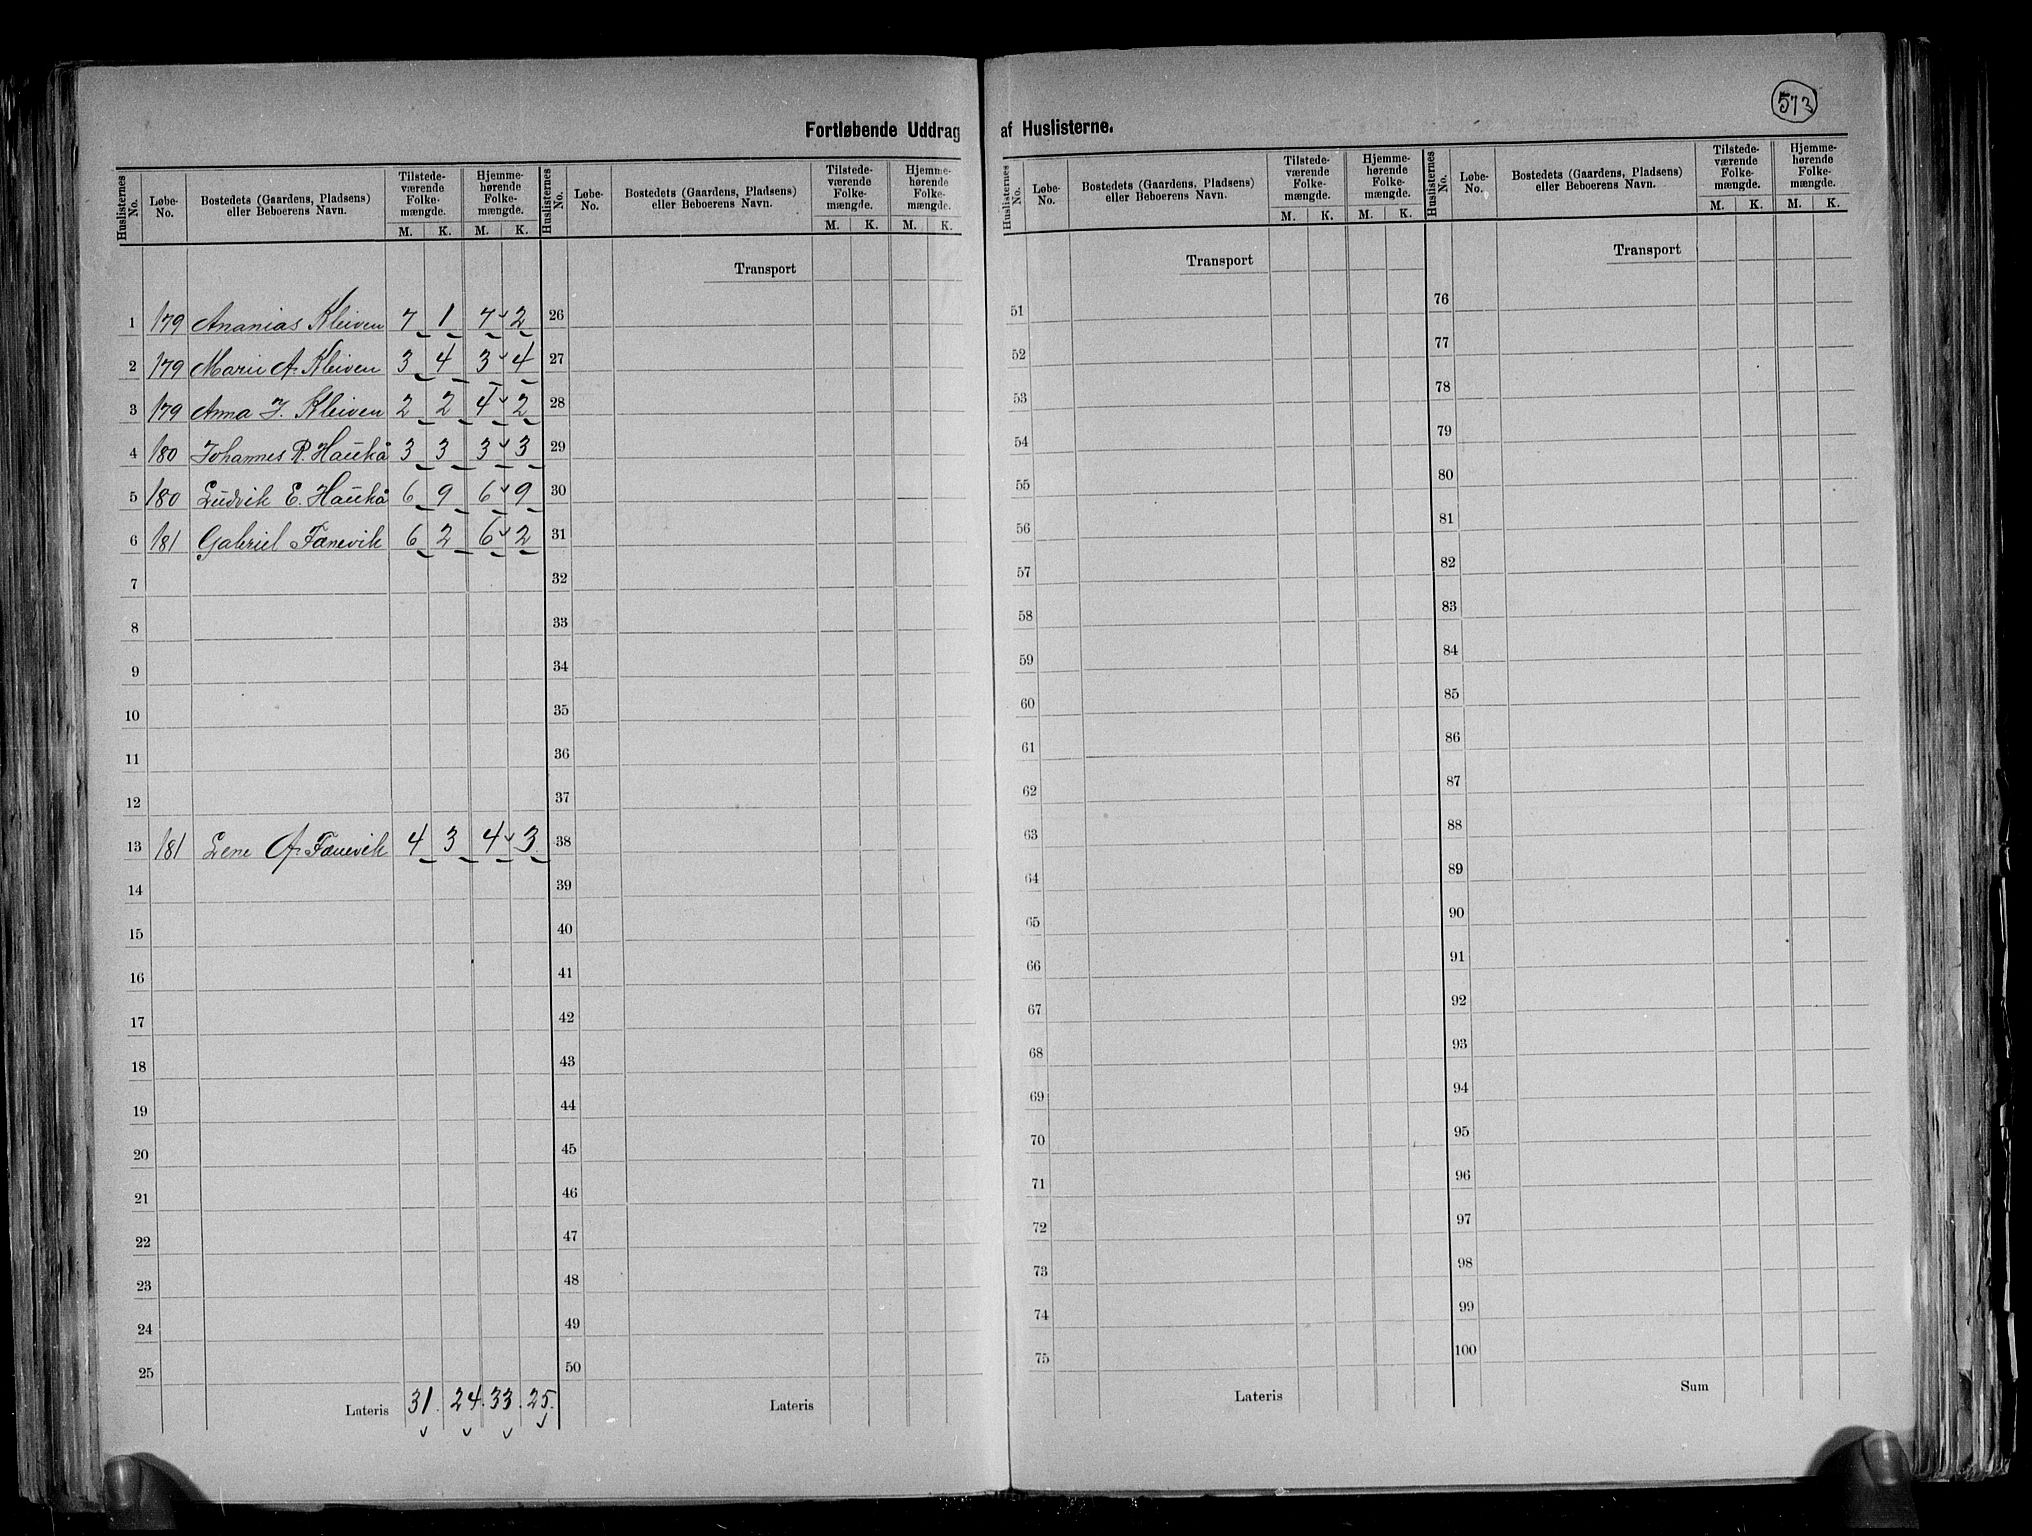 573
Fortløbende Uddrag af Huslisterne.
Huslisternes No. Løbe-No. Bostedets (Gaardens, Pladsens) eller Beboerens Navn. Tilstedeværende Folkemængde. Hjemmehørende Folkemængde.
M. K. M. K.
1 179 Ananias Kleiven 7 1 7 2
2 179 Marie A. Kleiven 3 4 3 4
3 179 Anna J. Kleiven 2 2 4 2
4 180 Johannes R. Haukå 3 3 3 3
5 180 Ludvik E. Haukå 6 9 6 9
6 181 Gabriel Fænevik 6 2 6 2
7
8
9
10
11
12
13 181 Lene A. Fænevik 4 3 4 3
14
15
16
17
18
19
20
21
22
23
24
25
Lateris 31. 24. 33. 25.
Huslisternes No. Løbe-No. Bostedets (Gaardens, Pladsens) eller Beboerens Navn. Tilstedeværende Folkemængde. Hjemmehørende Folkemængde.
M. K. M. K.
Transport
26
27
28
29
30
31
32
33
34
35
36
37
38
39
40
41
42
43
44
45
46
47
48
49
50
Lateris
Huslisternes No. Løbe-No. Bostedets (Gaardens, Pladsens) eller Beboerens Navn. Tilstedeværende Folkemængde. Hjemmehørende Folkemængde.
M. K. M. K.
Transport
51
52
53
54
55
56
57
58
59
60
61
62
63
64
65
66
67
68
69
70
71
72
73
74
75
Lateris
Huslisternes No. Løbe-No. Bostedets (Gaardens, Pladsens) eller Beboerens Navn. Tilstedeværende Folkemængde. Hjemmehørende Folkemængde.
M. K. M. K.
Transport
76
77
78
79
80
81
82
83
84
85
86
87
88
89
90
91
92
93
94
95
96
97
98
99
100
Sum